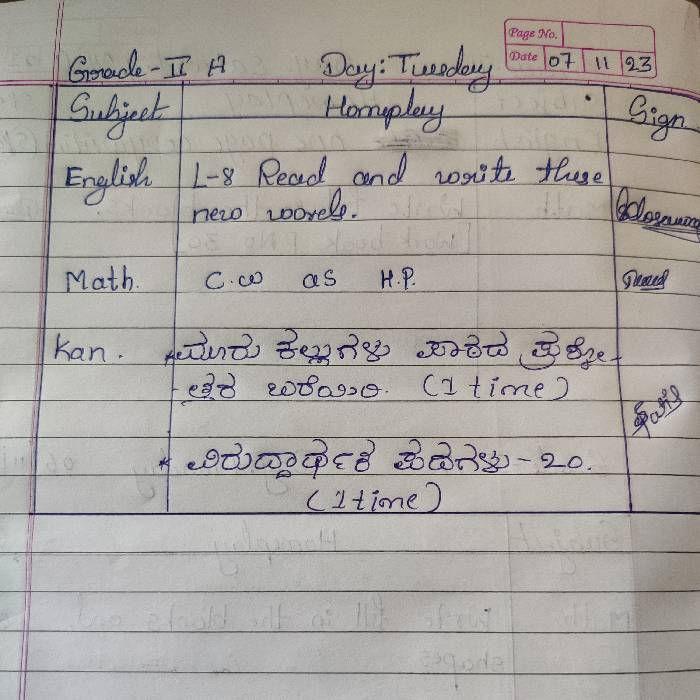 Page No.
Grade - II A Day: Tuesday Date 07 11 23
Subject Homeplay Sign
English L-8 Read and write these
new words.
Math. C.w as H.P.
Kan. * ಮೂರು ಕಲ್ಲುಗಳು ಪಾಠದ ಪ್ರಶ್ನೋ-
-ತ್ತರ ಬರೆಯಿರಿ. (1 time)
* ವಿರುದ್ಧಾರ್ಥಕ ಪದಗಳು - 20.
(1 time)